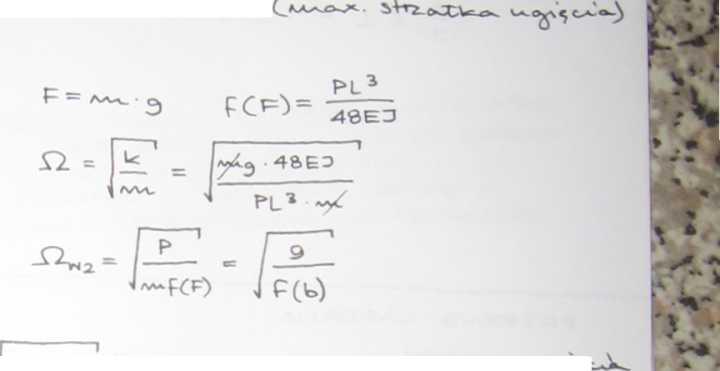 (max. strzałka ugięcia)
F = m·g f(F) = PL³/48EJ
Ω = √(k/m) = √(mg·48EJ/PL³·m)
Ω_W2 = √(P/mf(F)) = √(g/f(b))